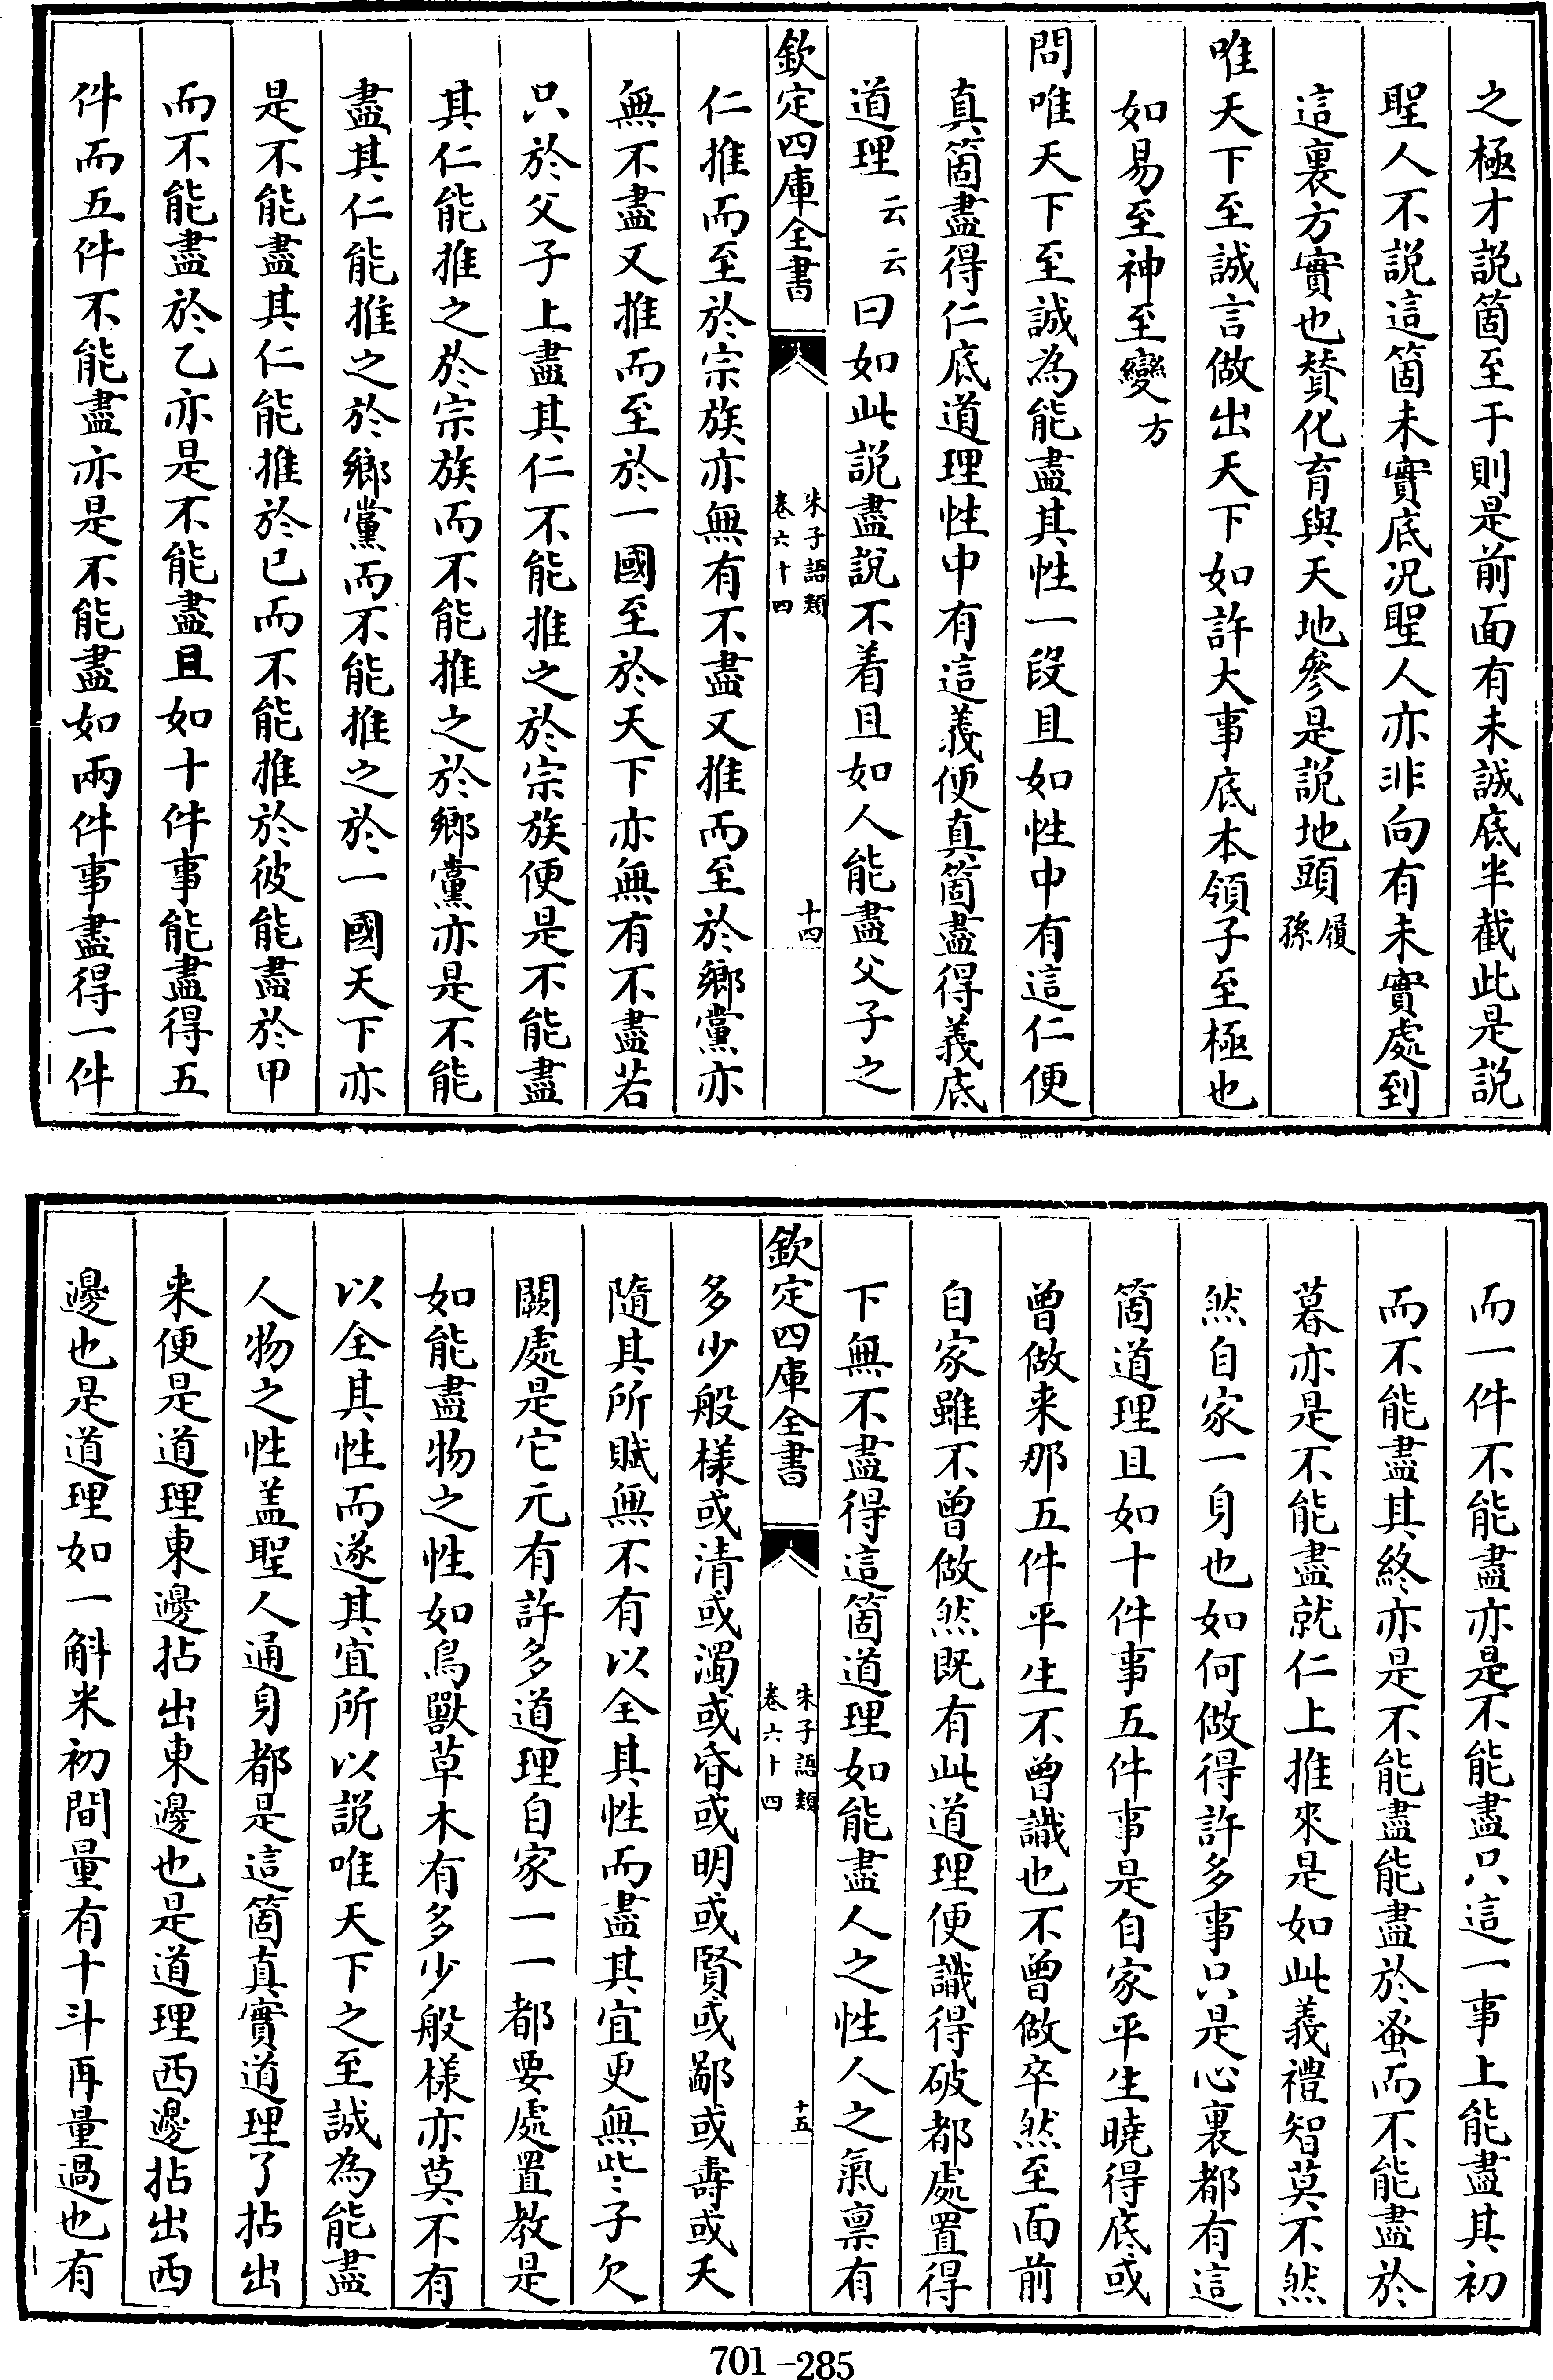 之極才説箇至于則是前面有未誠底半截此是説
聖人不説這箇未實底况聖人亦非向有未實處到
這裏方實也賛化育與天地參是説地頭履孫
唯天下至誠言做出天下如許大事底本領子至極也
如易至神至變方
問唯天下至誠為能盡其性一段且如性中有這仁便
真箇盡得仁底道理性中有這義便真箇盡得義底
道理云云曰如此説盡説不着且如人能盡父子之
欽定四庫全書
朱子語類
卷六十四
十四
仁推而至於宗族亦無有不盡又推而至於鄉黨亦
無不盡又推而至於一國至於天下亦無有不盡若
只於父子上盡其仁不能推之於宗族便是不能盡
其仁能推之於宗族而不能推之於鄉黨亦是不能
盡其仁能推之於鄉黨而不能推之於一國天下亦
是不能盡其仁能推於已而不能推於彼能盡於甲
而不能盡於乙亦是不能盡且如十件事能盡得五
件而五件不能盡亦是不能盡如兩件事盡得一件
而一件不能盡亦是不能盡只這一事上能盡其初
而不能盡其終亦是不能盡能盡於蚤而不能盡於
暮亦是不能盡就仁上推來是如此義禮智莫不然
然自家一身也如何做得許多事只是心裏都有這
箇道理且如十件事五件事是自家平生曉得底或
曾做来那五件平生不曾識也不曾做卒然至面前
自家雖不曾做然既有此道理便識得破都處置得
下無不盡得這箇道理如能盡人之性人之氣禀有
欽定四庫全書
朱子語類
卷六十四
十五
多少般樣或清或濁或昏或明或賢或鄙或壽或夭
隨其所賦無不有以全其性而盡其宜更無些子欠
闕處是它元有許多道理自家一一都要處置教是
如能盡物之性如鳥獸草木有多少般様亦莫不有
以全其性而遂其宜所以説唯天下之至誠為能盡
人物之性盖聖人通身都是這箇真實道理了拈出
来便是道理東邊拈出東邊也是道理西邊拈出西
邊也是道理如一斛米初間量有十斗再量過也有
701-285